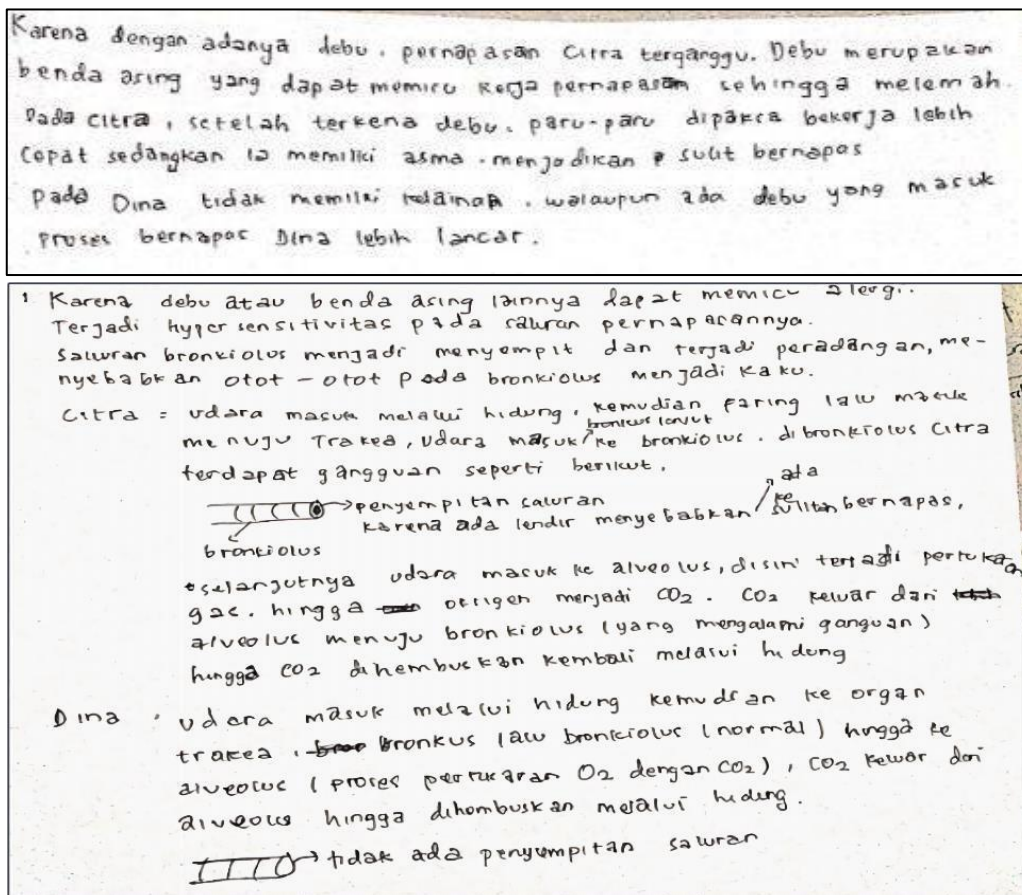 Karena dengan adanya debu, pernapasan Citra terganggu. Debu merupakan
benda asing yang dapat memicu kerja pernapasan sehingga melemah.
Pada citra, setelah terkena debu, paru-paru dipaksa bekerja lebih
cepat sedangkan ia memiliki asma. menjadikan sulit bernapas
Pada Dina tidak memiliki kelainan, walaupun ada debu yang masuk
proses bernapas Dina lebih lancar.
1 Karena debu atau benda asing lainnya dapat memicu alergi..
Terjadi hypersensitivitas pada saluran pernapasannya.
Saluran bronkiolus menjadi menyempit dan terjadi peradangan, me-
nyebabkan otot-otot pada bronkiolus menjadi kaku.
Citra = udara masuk melalui hidung, kemudian faring lalu masuk
bronkus lanjut
menuju Trakea, udara masuk/ke bronkiolus. dibronkiolus Citra
terdapat gangguan seperti berikut.
ada
→penyempitan saluran
karena ada lendir menyebabkan ke sulitan bernapas,
bronkiolus
selanjutnya udara masuk ke alveolus, disini terjadi pertukaan
gas. hingga oksigen menjadi CO2. CO2 keluar dari
alveolus menuju bronkiolus (yang mengalami ganguan)
hingga CO2 dihembuskan kembali melalui hidung
Dina : udara masuk melalui hidung kemudian ke organ
trakea, bronkus lalu bronkiolus (normal) hingga ke
alveolus (proses pertukaran O2 dengan CO2), CO2 keluar dari
alveolus hingga dihembuskan melalui hidung.
→ tidak ada penyempitan saluran